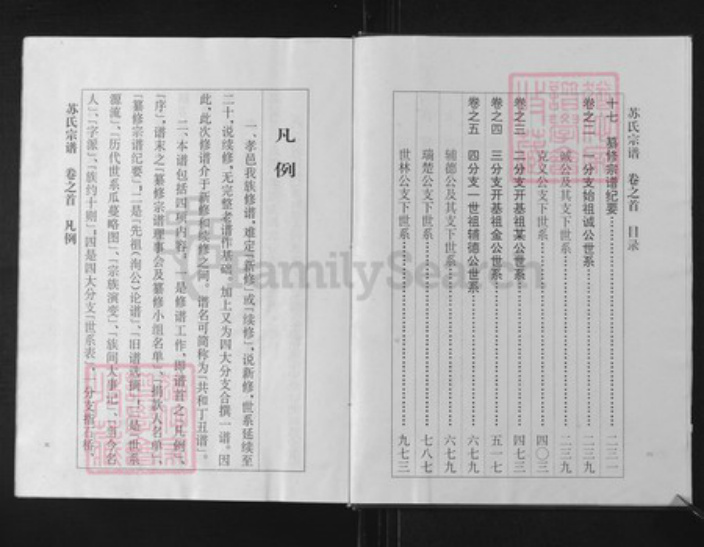 苏氏宗谱 卷之首 目录
十七、纂修宗谱纪要……二三一
卷之二 一分支始祖诚公世系……二三九
诚公及其支下世系……二三九
克义公支下世系……四〇三
卷之三 二分支开基祖某公世系……四七三
卷之四 三分支开基祖金公世系……五一七
卷之五 四分支一世祖辅德公世系……六七九
辅德公及其支下世系……六七九
瑞楚公支下世系……七八七
世林公支下世系……九七三
凡例
一、孝邑我族修谱,难定「新修」或「续修」,说新修,世系延续至
二十,说续修,无完整老谱作基础。加上又为四大分支合撰一谱。因
此,此次修谱介于新修和续修之间。谱名可简称为「共和丁丑谱」。
二、本谱包括四项内容。一是修谱工作,即谱首之「凡例」、
「序」,谱末之「纂修宗谱理事会及纂修小组名单」、「捐款人名单」、
「纂修宗谱纪要」。二是「先祖(洵公)论谱」、「旧谱选摘」。三是「世系
源流」、「历代世系瓜蔓略图」、「宗族演变」、「族间大事记」、「当今名
人」、「字派」、「族约十则」。四是四大分支「世系表」。一分支
苏氏宗谱 卷之首 凡例
FamilySearch